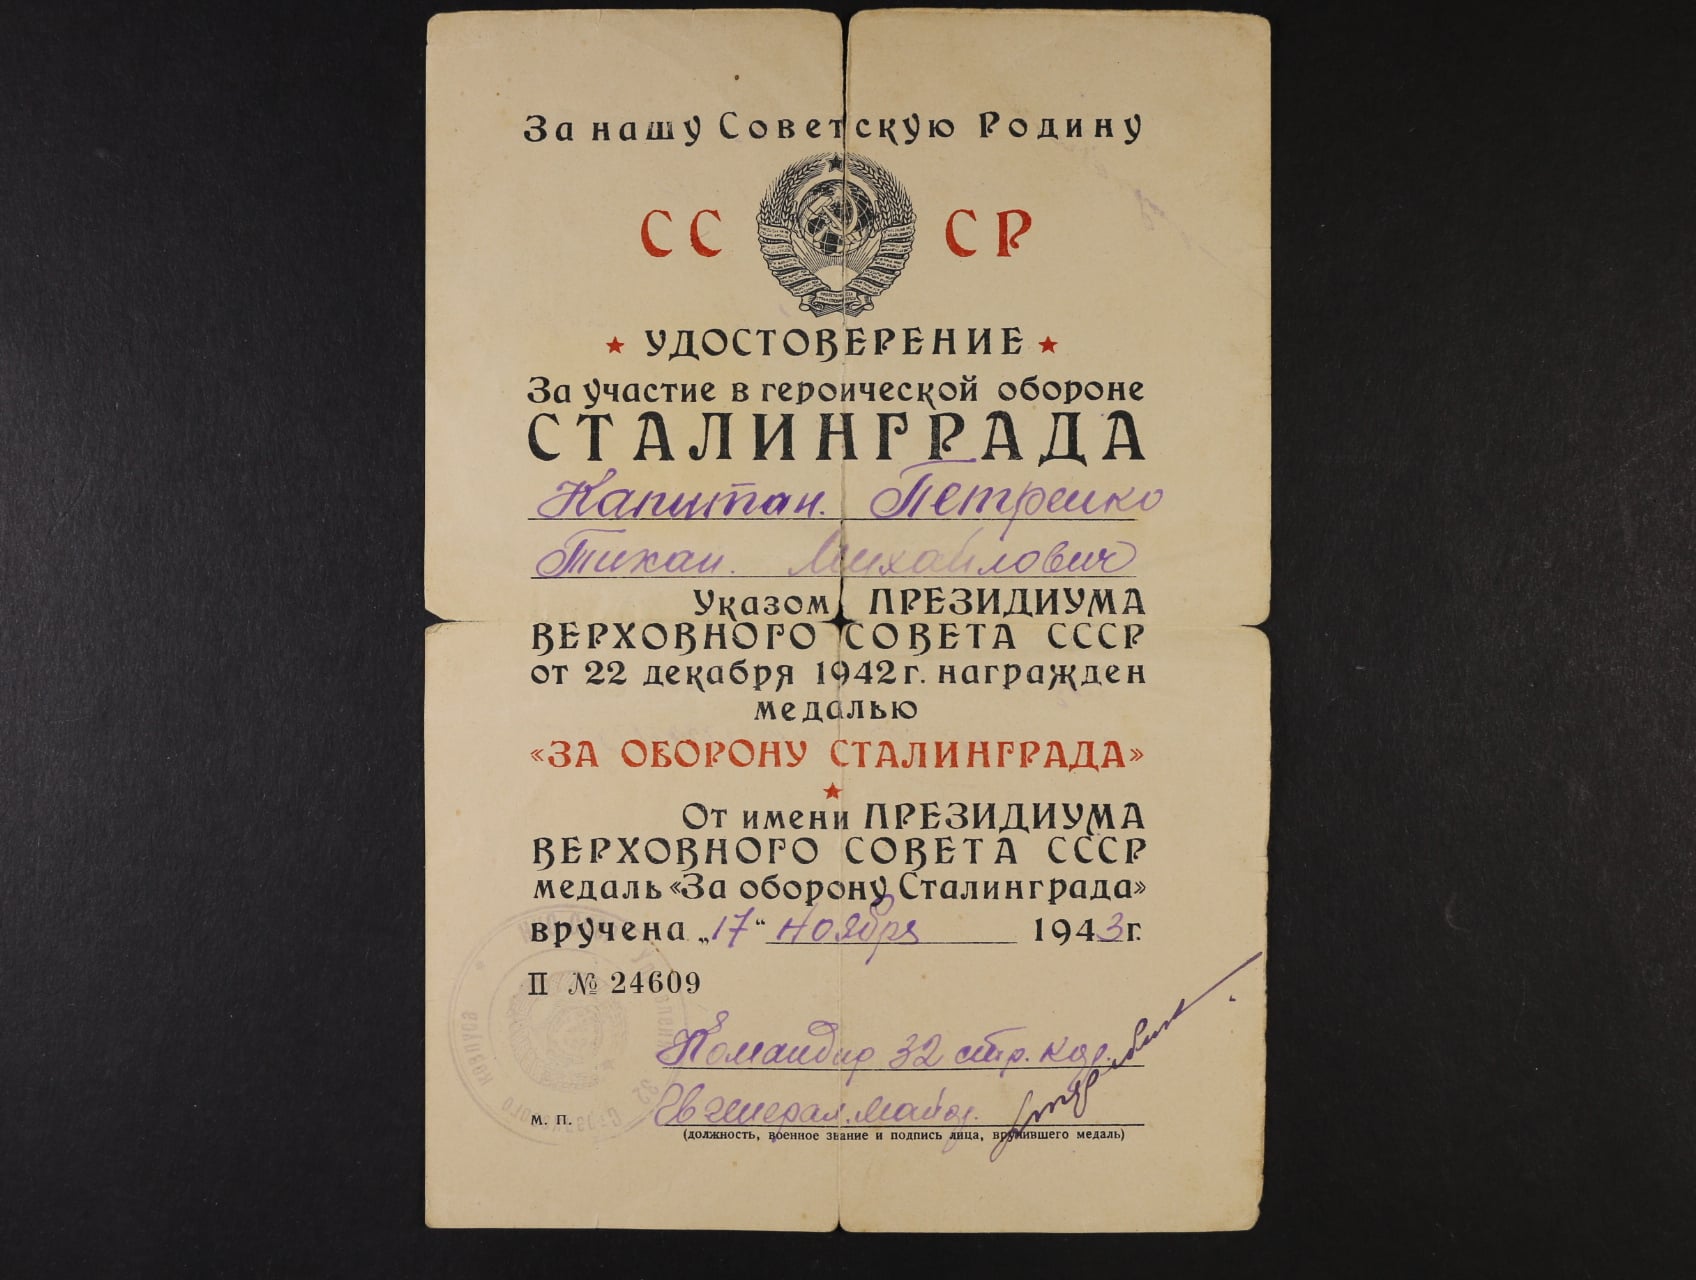 За нашу Советскую Родину
СССР
УДОСТОВЕРЕНИЕ
За участие в героической обороне
СТАЛИНГРАДА
Капитан. Петренко
Тихан. Михайлович
Указом ПРЕЗИДИУМА
ВЕРХОВНОГО СОВЕТА СССР
от 22 декабря 1942 г. награжден
медалью
«ЗА ОБОРОНУ СТАЛИНГРАДА»
От имени ПРЕЗИДИУМА
ВЕРХОВНОГО СОВЕТА СССР
медаль «За оборону Сталинграда»
вручена „17“ ноября 1943 г.
П № 24609
Командир 32 стр. кор.
Гв генерал.майор.
М. П.
(должность, военное звание и подпись лица, вручившего медаль)
Управление 32 Стрелкового корпуса